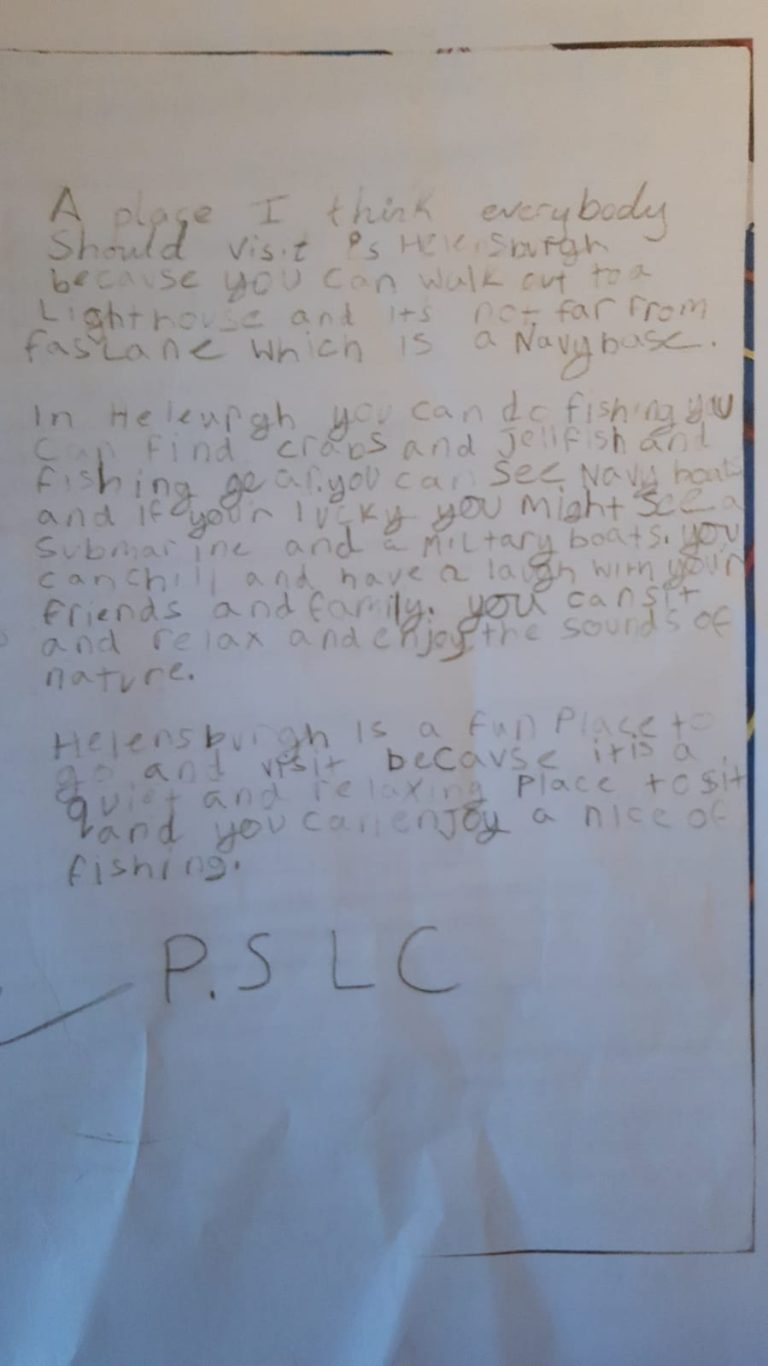 A place I think everybody
Should visit is Helensburgh
because you can walk out to a
Lighthouse and its not far from
faslane which is a Navy base.
In Heleurgh you can do fishing you
can find crabs and jellfish and
fishing gear. you can see Navy boats
and if your lucky you might see a
Submarine and a miltary boats. you
can chill and have a laugh with your
friends and family. you can sit
and relax and enjoy the sounds of
nature.
Helensburgh is a fun Place to
go and visit because it is a
quiet and relaxing place to sit
and you can enjoy a nice of
fishing.
P.S L C